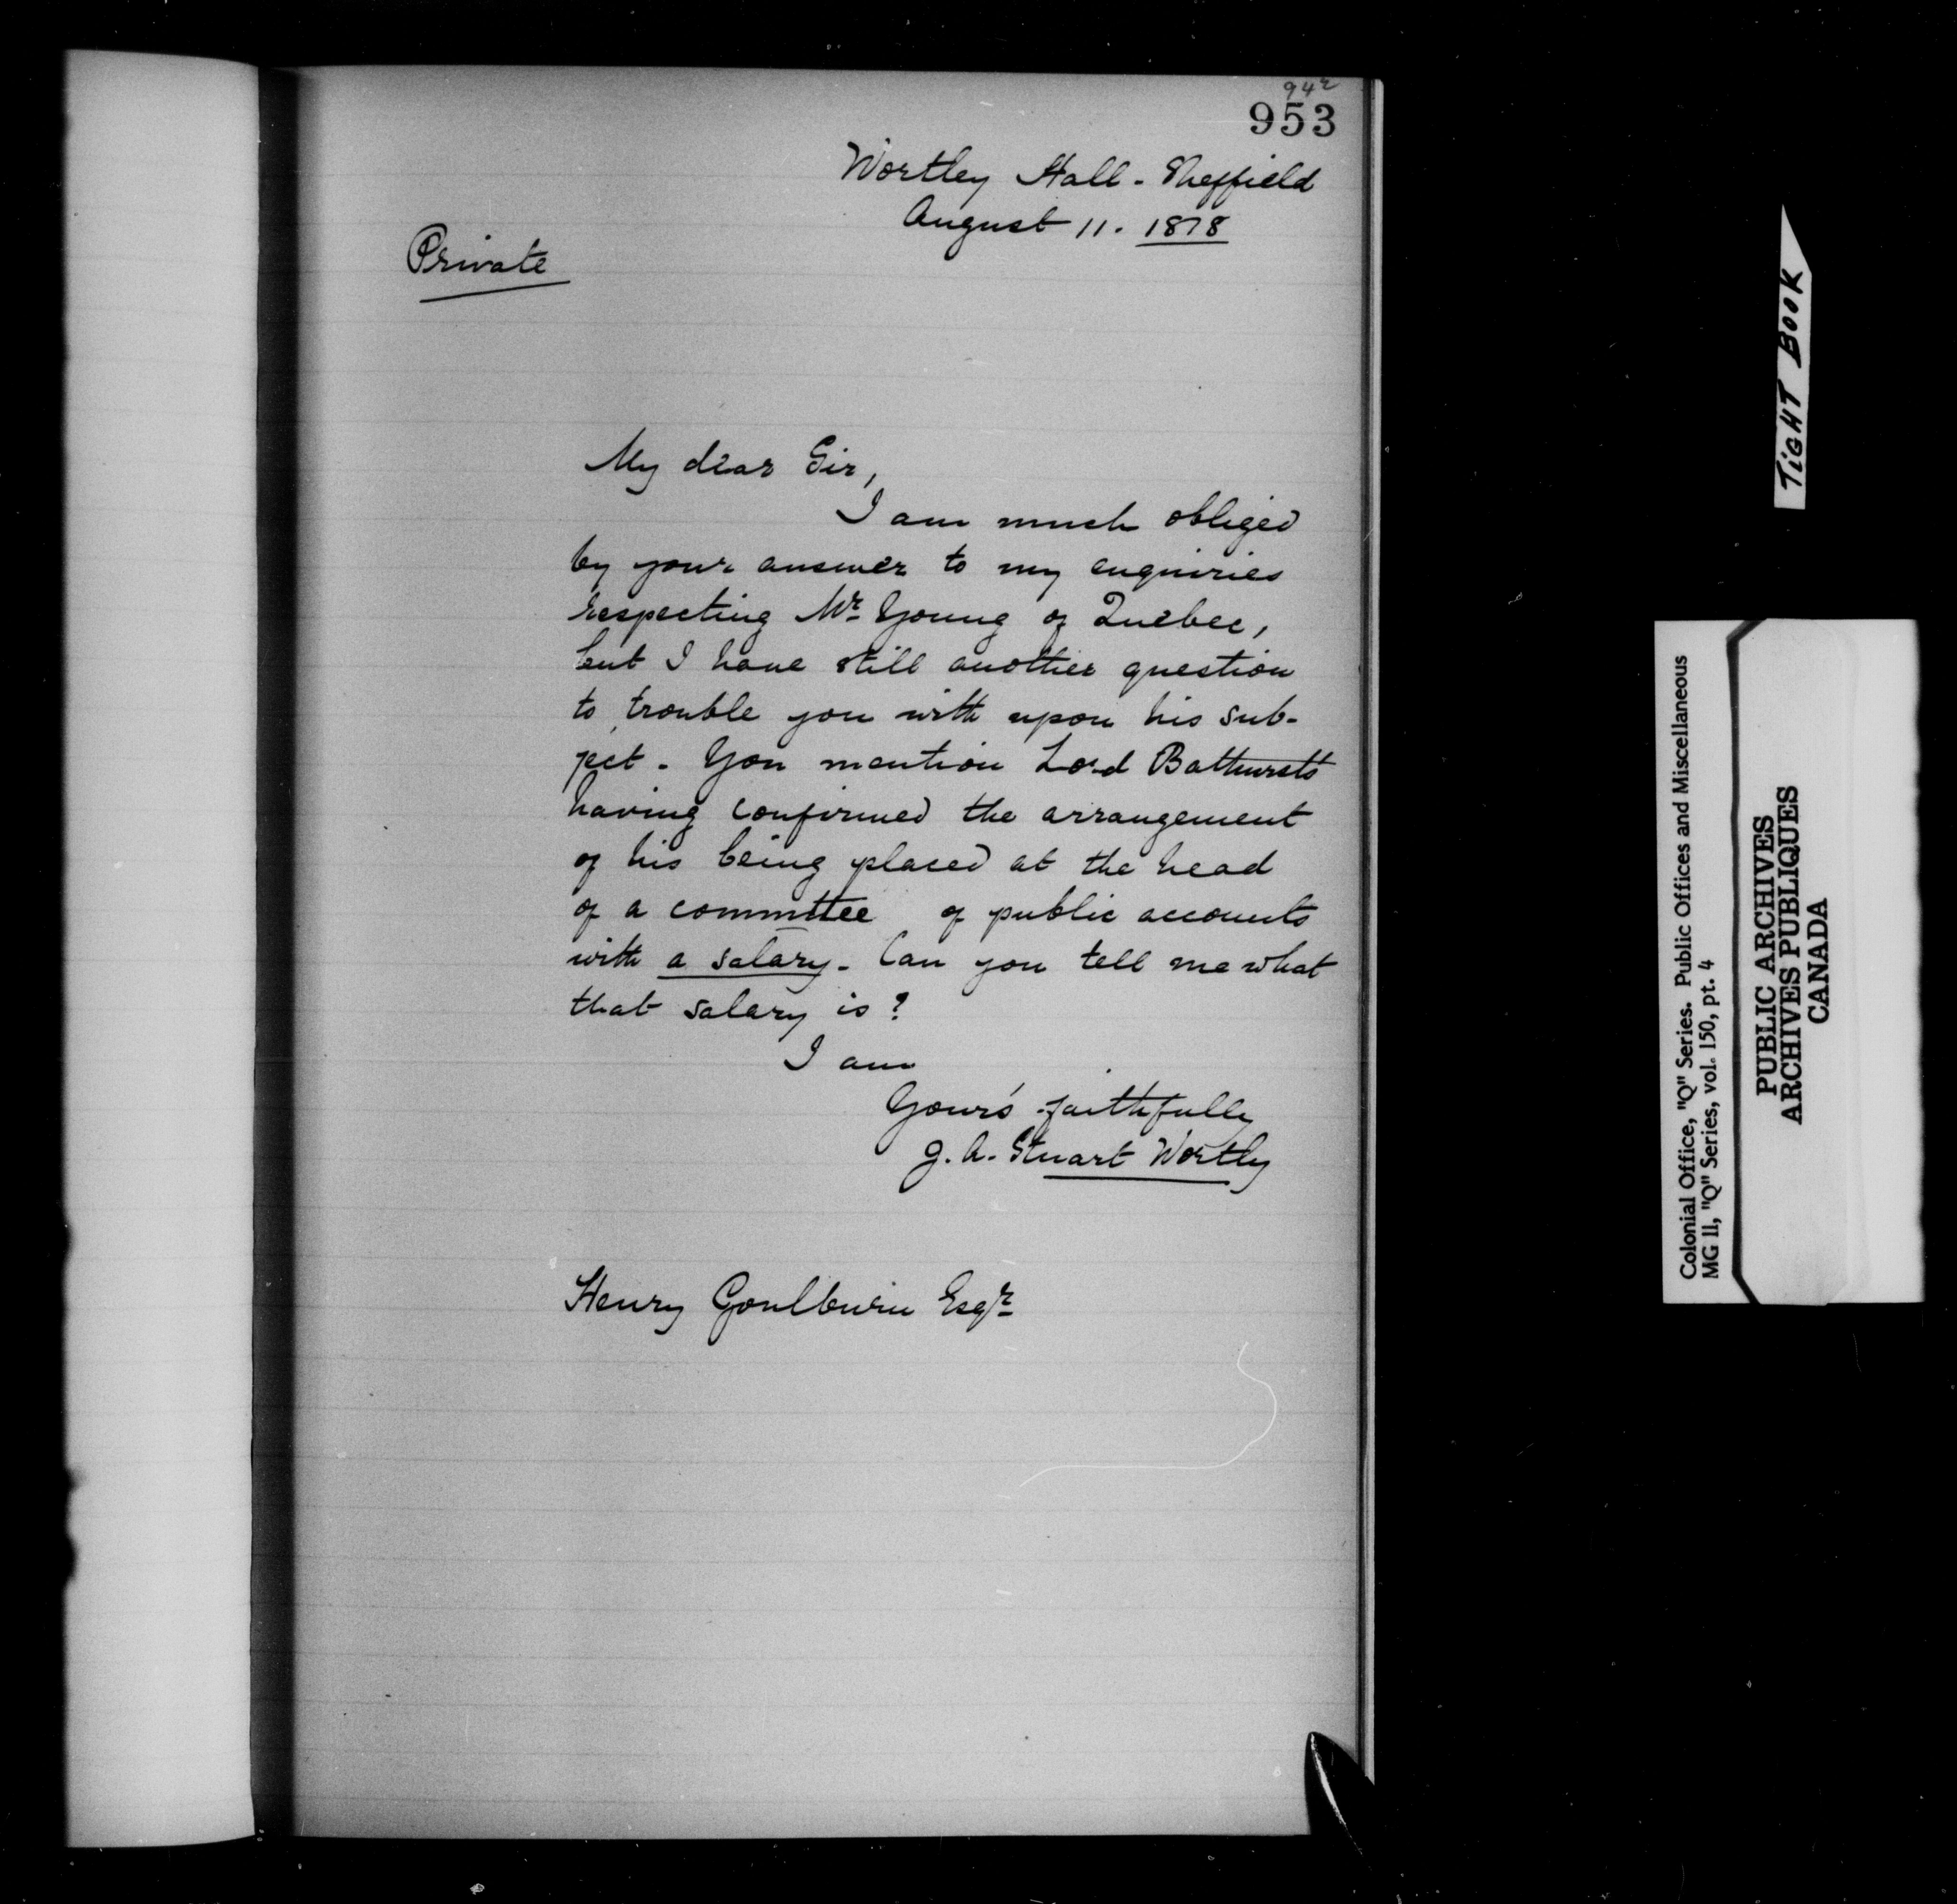 942
953
Wortley Hall - Sheffield
August 11. 1818
Private
My dear Sir,
I am much obliged
by your answer to my enquiries
respecting Mr. Young of Quebec,
but I have still another question
to trouble you with upon his sub-
ject. You mention Lord Bathurst's
having confirmed the arrangement
of his being placed at the head
of a committee of public accounts
with a salary. Can you tell me what
that salary is?
I am
Your's faithfully
J. A. Stuart Wortley
Henry Goulburn Esqr.
TIGHT BOOK
Colonial Office, "Q" Series. Public Offices and Miscellaneous
MG 11, "Q" Series, vol. 150, pt. 4
PUBLIC ARCHIVES
ARCHIVES PUBLIQUES
CANADA